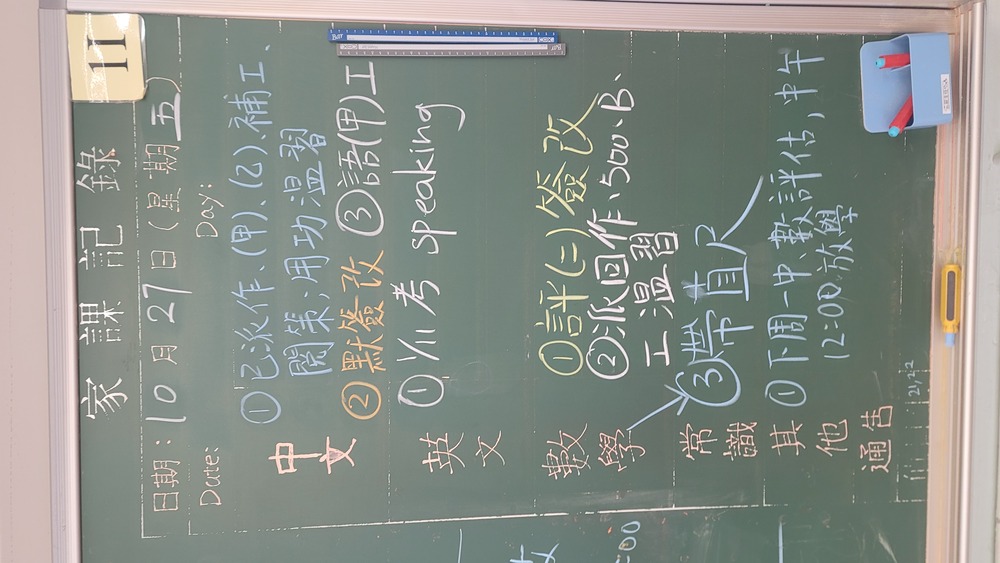 11
家課記錄
日期:10月27日(星期五)
Date:
Day:
中文
①已派作、(甲)、(乙)、補工、
閱策;用功溫習
②默簽改 ③語(甲)工
英文
① 1/11 考 speaking
數學
①評(二)簽改
②派回作、500、B、
工溫習
③帶直尺
常識
其他
①下周一中、數評估,中午
12:00放學
通告
21,22
:00